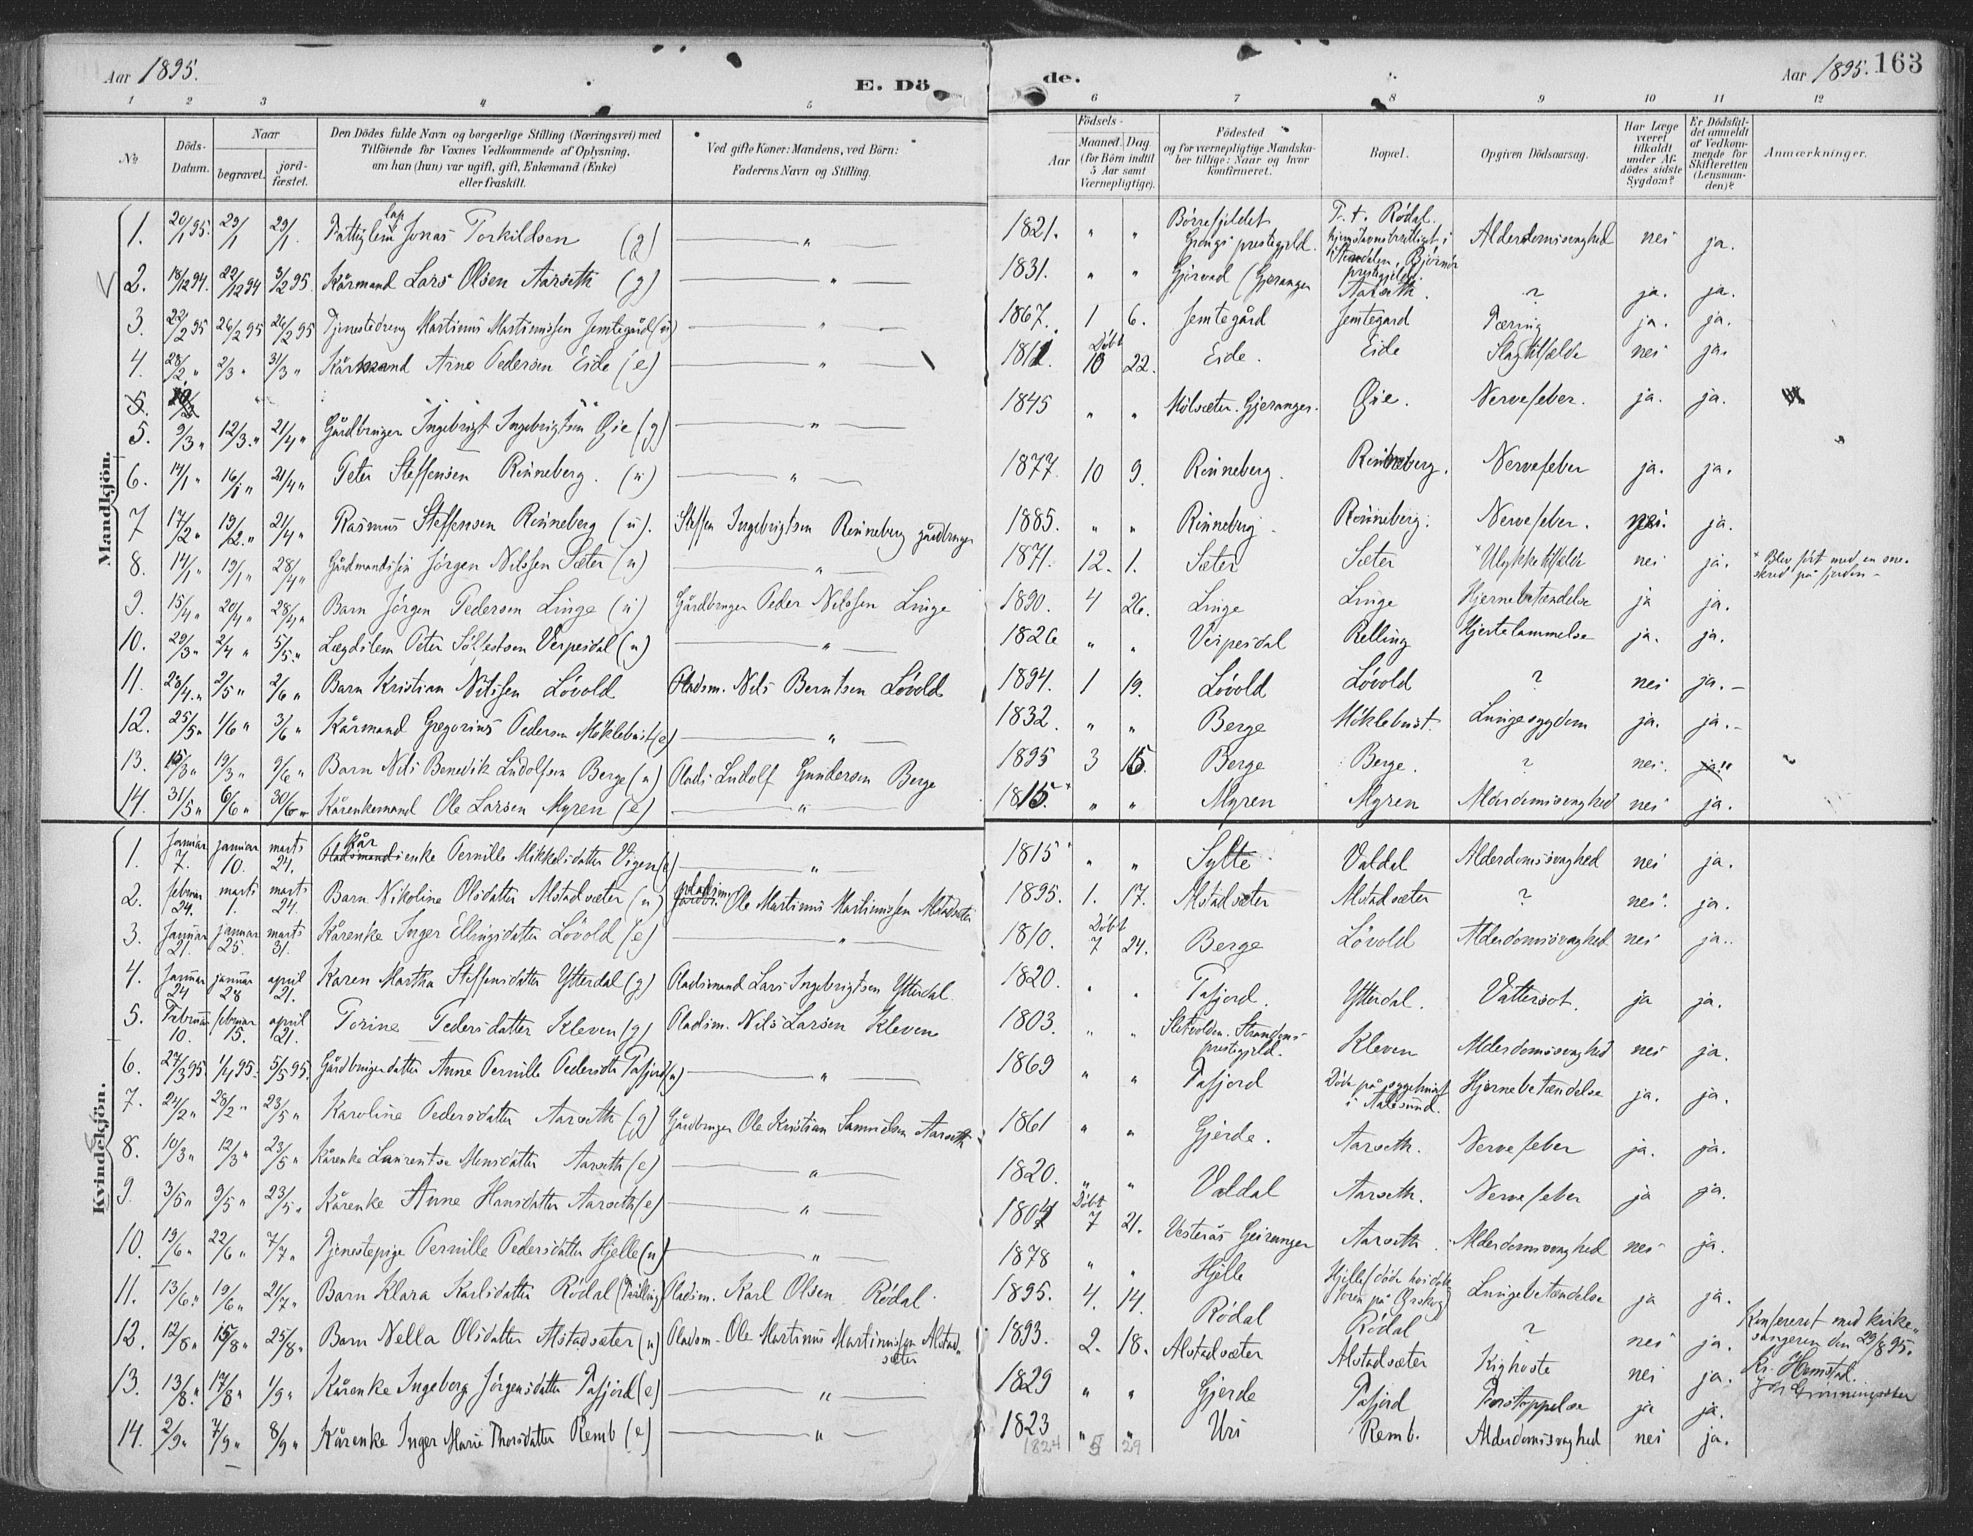 Aar 1895.
E. Dö
de.
Aar 1895. 163
1 2 3 4 5 6 7 8 9 10 11 12
No
Döds-Datum.
Naar
begravet.
jord-fæstet.
Den Dödes fulde Navn og borgerlige Stilling (Næringsvei) med
Tilföiende for Voxnes Vedkommende af Oplysning,
om han (hun) var ugift, gift, Enkemand (Enke)
eller fraskilt.
Ved gifte Koner: Mandens, ved Börn:
Faderens Navn og Stilling.
Födsels-
Aar
Maaned. Dag
(for Börn indtil
5 Aar samt
Værnepligtige).
Födested
og for værnepligtige Mandska-
ber tillige: Naar og hvor
konfirmeret.
Bopæl.
Opgiven Dödsaarsag.
Har Læge
været
tilkaldt
under Af-
dödes sidste
Sygdom?
Er Dödsfal-
det anmeldt
af Vedkom-
mende for
Skifteretten
(Lensman-
den)?
Anmærkninger.
Mandkjön.
1. 20/1 95. 29/1 29/1. Fattiglem lap Jonas Torkildsen (g) " 1821. " " Börrefjeldet Grongs prestegjeld. F. t. Rödal. hjemstavnsberettiget i Stordalen, Björnör prestegjeld. Alderdomssvaghed nei ja.
2. 18/12 94. 22/12 94 3/2 95. Kårmand Lars Olsen Aarseth (g) " 1831. " " Gjörvad (Gjeranger Aarseth. ? ja. ja.
3. 22/2 95 26/2 95 26/2 95 Tjenestedreng Martinus Martinussen Jemtegård (u) " 1867. 1 6. Jemtegård Jemtegard Tæring ja. ja.
4. 28/2 " 2/3 " 31/3 " Kårmand Arne Pedersen Eide (e) " 1811. Döbt 10 22. Eide. Eide Slagtilfælde nei ja.
5.
5. 9/3 " 12/3 " 21/4 " Gårdbruger Ingebrigt Ingebrigtsen Öie (g) " 1845 " " Hölsæter. Gjeranger. Öie. Nervefeber. ja. ja.
6. 14/1 " 16/1 " 21/4 " Peter Steffensen Rönneberg. (u) " 1877. 10 9. Rönneberg. Rönneberg. Nervefeber ja. ja.
7 17/2 " 19/2. " 21/4 " Rasmus Steffensen Rönneberg (u). Steffen Ingebrigtsen Rönneberg gårdbruger 1885. " " Rönneberg. Rönneberg. Nervefeber. nei. ja.
8. 14/1 " 19/1 " 28/4 " Gårdmandssön Jörgen Nilssen Sæter (u) " 1871. 12. 1. Sæter Sæter * Ulykkestilfælde nei ja. * Blev ført med en sne-
skred på fjorden –
9. 15/4 " 20/4 " 28/4 " Barn Jörgen Pedersen Linge (u) Gårdbruger Peder Nilssen Linge 1890. 4 26. Linge Linge Hjernebetændelse ja ja.
10. 29/3 " 2/4 " 5/5. " Lægdslem Peter Sölfestsen Verpesdal (u) " 1826 " " Verpesdal Relling Hjertelammelse ja. ja.
11. 28/4. " 2/5 " 2/6 " Barn Kristian Nilssen Lövold Pladsm. Nils Berntsen Lövold 1894. 1 19. Lövold Lövold ? nei ja. –
12. 25/5 " 1/6 " 3/6 " Kårmand Gregorius Pedersen Möklebust (e) " 1832. " " Berge Möklebust. Lungesygdom ja. ja. –
13. 15/3 " 19/3 " 9/6 " Barn Nils Benedik Ludolfsen Berge (u) Plads. Ludolf Gundersen Berge 1895 3 15. Berge Berge. ? nei. ja.
14. 31/5 " 6/6 " 30/6 " Kårenkemand Ole Larsen Myren (e) " 1815. " " Myren Myren Alderdomssvaghed nei ja.
Kvindekjön.
1. Januar 7. januar 10. marts 24. Kår Pladsmandsenke Pernille Mikkelsdatter Vigen (e) " 1815 " " Sylte Valdal Alderdomssvaghed nei ja.
2. februar 24. marts 1. marts 24. Barn Nikoline Olsdatter Alstadsæter (u) pladsm. Ole Martinus Martinussen Alstadsæter 1895. 1. 17. Alstadsæter Alstadsæter ? nei. ja.
3. Januar 21. januar 25. marts 31. Kårenke Inger Ellingsdatter Lövold (e) " 1810. Döbt 7 24. Berge Lövold Alderdomssvaghed nei ja.
4. Januar 24 januar 28 april 21. Karen Martha Steffensdatter Ytterdal (g) Pladsmand Lars Ingebrigtsen Ytterdal. 1820. " " Tafjord. Ytterdal. Vattersot. ja ja.
5. Februar 10. februar 15. april 21. Torine Pedersdatter Kleven (g) Pladsm. Nils Larsen Kleven 1803. " " Sletvolden. Strandens prestegjeld. Kleven Alderdomssvaghed nei ja.
6. 27/3 95. 1/4 95. 5/5 95. Gårdbrugerdatter Anne Pernille Pedersdtr Tafjord (u) " 1869 " " Tafjord Döde på sygehuset i Aalesund. Hjernebetændelse ja. ja.
7. 24/2 " 28/2 " 23/5 " Karoline Pedersdatter Aarseth (g) Gårdbruger Ole Kristian Samuelsen Aarseth 1861 " " Gjerde. Aarseth. Nervefeber ja. ja.
8. 10/3 " 12/3 " 23/5 " Kårenke Laurentse Monsdatter Aarseth (e) " 1820. " " Valdal Aarseth. Nervefeber ja ja.
9. 3/5 " 9/5 " 23/5 " Kårenke Anne Hansdatter Aarseth (e) " 1807 Döbt 7 21. Vesterås Geiranger Aarseth. Alderdomssvaghed nei ja.
10. 19/6 " 22/6 " 7/7 " Tjenestepige Pernille Pedersdatter Hjelle (u) " 1878 " " Hjelle Hjelle Lungebetændelse ja ja.
11. 13/6 " 19/6 " 21/7 " Barn Klara Karlsdatter Rödal (Tvilling) Pladsm. Karl Olsen Rödal. 1895. 4. 14. Rödal Rödal ? nei ja.
12. 12/8 " 15/8 " 25/8 " Barn Nella Olsdatter Alstadsæter (u) Pladsm. Ole Martinus Martinussen Alstad-
sæter 1893. 2. 18. Alstadsæter Alstadsæter Kighoste nei ja. Konfereret med kirke-
sangeren den 29/8 95.
13. 13/8. " 17/8 " 1/9 " Kårenke Ingeborg Jörgensdatter Tafjord (e) " 1829 " " Gjerde Tafjord Forstoppelse ja ja.
14. 2/9 " 7/9 " 8/9 " Kårenke Inger Marie Thorsdatter Remb (e) " 1823 " " Uri Remb. Alderdomssvaghed nei ja.
1824 5 29